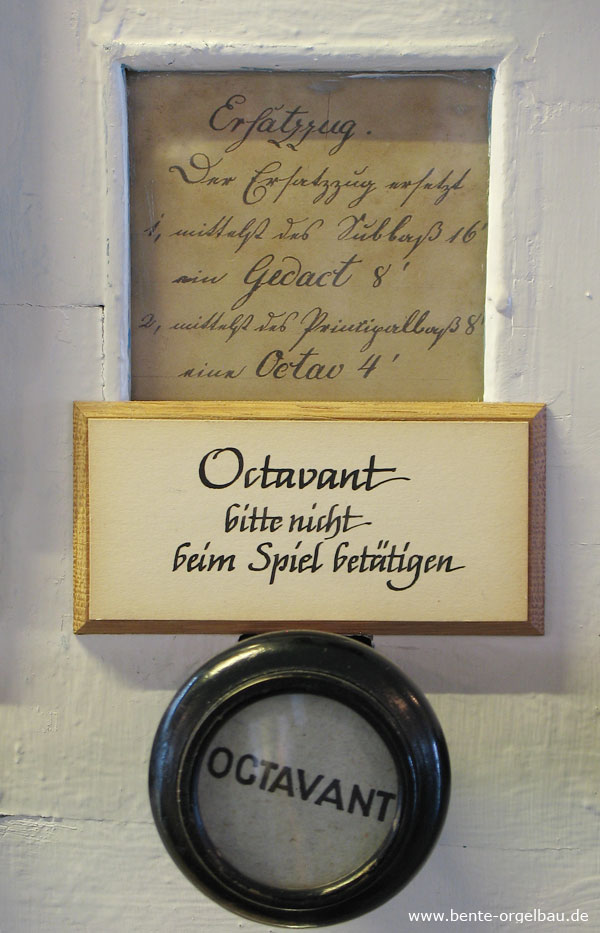 Ersatzzug.
Der Ersatzzug ersetzt
1, mittelst des Subbaß 16'
ein Gedact 8'
2, mittelst des Principalbaß 8'
eine Octav 4'
Octavant
bitte nicht
beim Spiel betätigen
OCTAVANT
www.bente-orgelbau.de